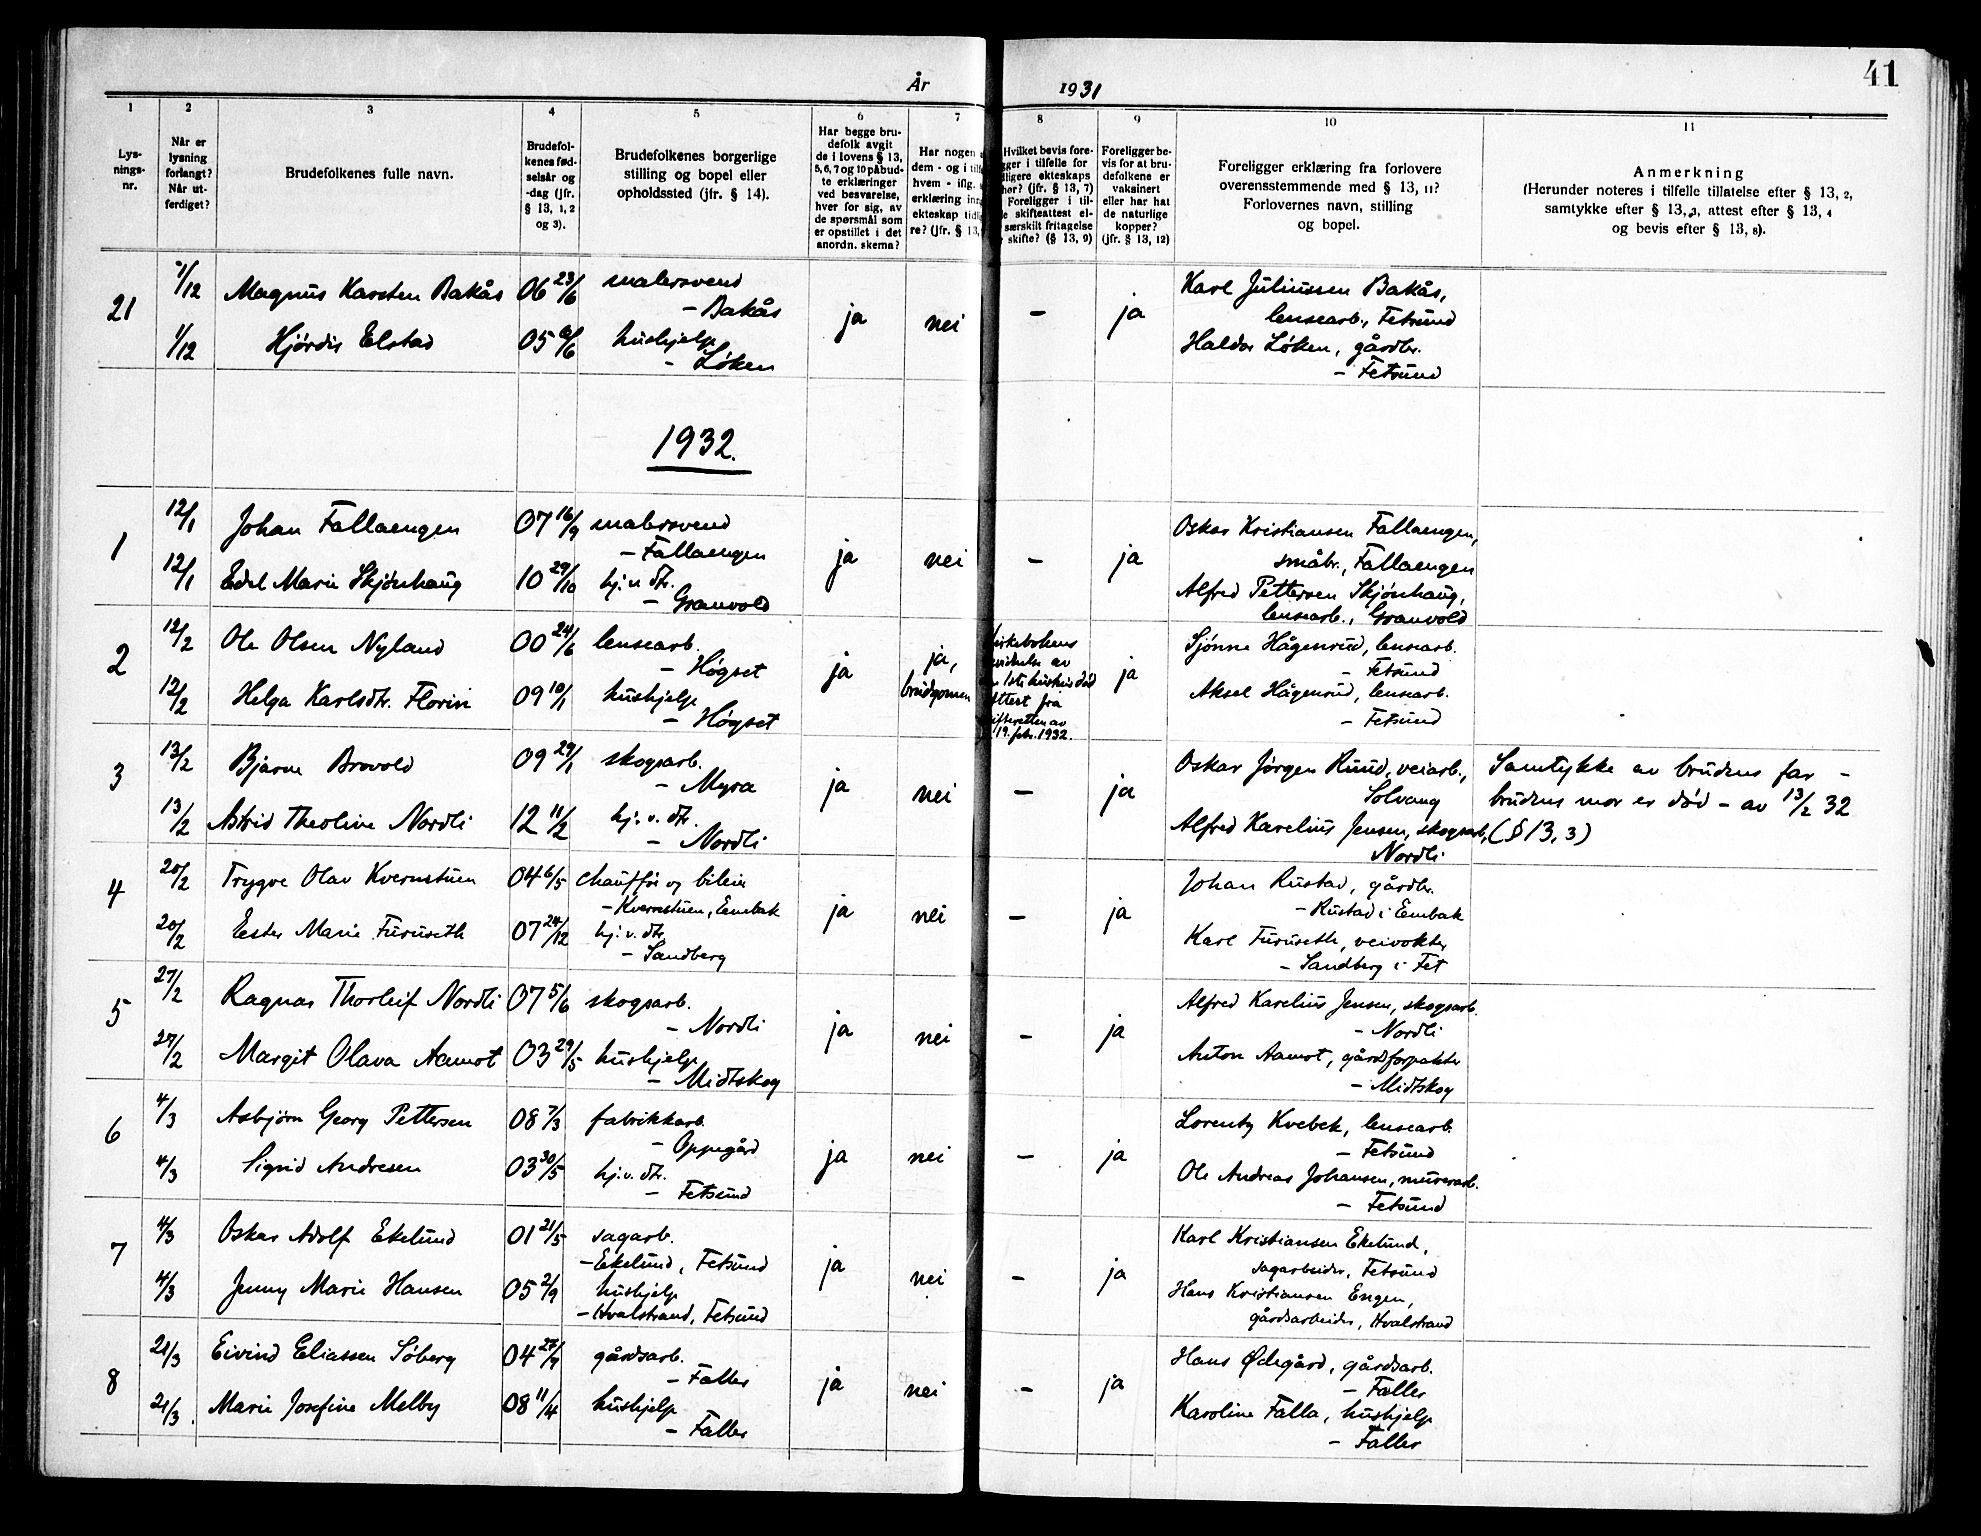 År 1931
41
1
2
3
4
5
6
7
8
9
10
11
Lys-
nings-
nr.
Når er
lysning
forlangt?
Når ut-
ferdiget?
Brudefolkenes fulle navn.
Brudefol-
kenes fød-
selsår og
-dag (jfr.
§ 13, 1, 2
og 3).
Brudefolkenes borgerlige
stilling og bopel eller
opholdssted (jfr. § 14).
Har begge bru-
defolk avgit
de i lovens § 13,
5, 6, 7 og 10 påbud-
te erklæringer
ved besvarelse,
hver for sig, av
de spørsmål som
er opstillet i det
anordn. skema?
Har nogen
dem - og i tilf
hvem - iflg.
erklæring inn
ekteskap tidl
re? (jfr. § 13,
Hvilket bevis fore-
gger i tilfelle for
dligere ekteskaps
hør? (jfr. § 13, 7)
Foreligger i til-
e skifteattest el-
særskilt fritagelse
skifte? (§ 13, 9)
Foreligger be-
vis for at bru-
defolkene er
vaksinert
eller har hat
de naturlige
kopper?
(jfr. § 13, 12)
Foreligger erklæring fra forlovere
overensstemmende med § 13, 11?
Forlovernes navn, stilling
og bopel.
Anmerkning
(Herunder noteres i tilfelle tillatelse efter § 13, 2,
samtykke efter § 13, 3, attest efter § 13, 4
og bevis efter § 13, 8).
21
1/12 Magnus Karsten Bakås 06 23/6 malersvend
- Bakås
1/12 Hjördis Elstad 05 6/6 hushjelp
- Løken
ja nei - ja
Karl Juliussen Bakås,
lensearb., Fetsund
Haldor Løken, gårdbr.
- Fetsund
1932.
1
12/1 Johan Fallaengen 07 16/9 malersvend
- Fallaengen
12/1 Edel Marie Skjønhaug 10 29/10 hj. v. dtr.
- Granvold
ja nei - ja
Oskar Kristiansen Fallaengen,
småbr., Fallaengen
Alfred Pettersen Skjønhaug,
lensearb., Granvold
2
12/2 Ole Olsen Nyland 00 24/6 lensearb.
- Høgset
12/2 Helga Karlsdtr. Florin 09 10/1 hushjelp
- Høgset
ja
ja,
brudgommen
irkebokens
av
1ste hustrus död
ttest fra
ifteretten av
19. febr. 1932.
ja
Sjønne Hågensrud, lensearb.
- Fetsund
Aksel Hågensrud, lensearb.
- Fetsund
3
13/2 Bjarne Brovold 09 29/1 skogsarb.
- Myra
13/2 Astrid Theoline Nordli 12 11/2 hj. v. dtr.
- Nordli
ja nei - ja
Oskar Jørgen Ruud, veiarb.,
Solvang
Alfred Karelius Jensen, skogsarb.,
Nordli
Samtykke av brudens far -
brudens mor er død - av 13/2 32
(§ 13, 3)
4
20/2 Trygve Olav Kvernstuen 04 6/5 chauffør og bileier
- Kvernstuen, Enebak
20/2 Ester Marie Furuseth 07 24/12 hj. v. dtr.
- Sandberg
ja nei - ja
Johan Rustad, gårdbr.
- Rustad i Enebak
Karl Furuseth, veivokter
- Sandberg i Fet
5
27/2 Ragnar Thorleif Nordli 07 5/6 skogsarb.
- Nordli
27/2 Margit Olava Aamot 03 29/5 hushjelp
- Midtskog
ja nei - ja
Alfred Karelius Jensen, skogsarb.
- Nordli
Anton Aamot, gårdforpakter
- Midtskog
6
4/3 Asbjørn Georg Pettersen 08 7/3 fabrikkarb.
- Oppegård
4/3 Sigrid Andresen 03 30/5 hj. v. dtr.
- Fetsund
ja nei - ja
Lorentz Kvebek, lensearb.
- Fetsund
Ole Andreas Johansen, murerarb.
- Fetsund
7
4/3 Oskar Adolf Ekelund 01 21/5 sagarb.
- Ekelund, Fetsund
4/3 Jenny Marie Hansen 05 2/9 hushjelp
- Hvalstrand, Fetsund
ja nei - ja
Karl Kristiansen Ekelund,
sagarbeider, Fetsund
Hans Kristiansen Engen,
gårdsarbeider, Hvalstrand
8
21/3 Eivind Eliassen Søberg 04 27/9 gårdsarb.
- Faller
21/3 Marie Josefine Melby 08 11/4 hushjelp
- Faller
ja nei - ja
Hans Ødegård, gårdsarb.
- Faller
Karoline Falla, hushjelp
- Faller